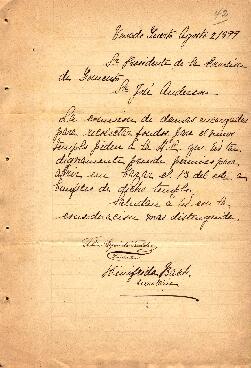 42
Venado Tuerto Agosto 2/1899
Sr Presidente de la Comision
de Fomento
Sr José Anderson
La comision de damas encargadas
para recolectar fondos para el nuevo
templo piden a la H.C. que tan
dignamente preside permiso para
abrir un bazar el 13 del cte a
de dicho templo.
Saludan a Vd con la
consideracion mas distinguida.
Presidenta
Bach
Secretaria